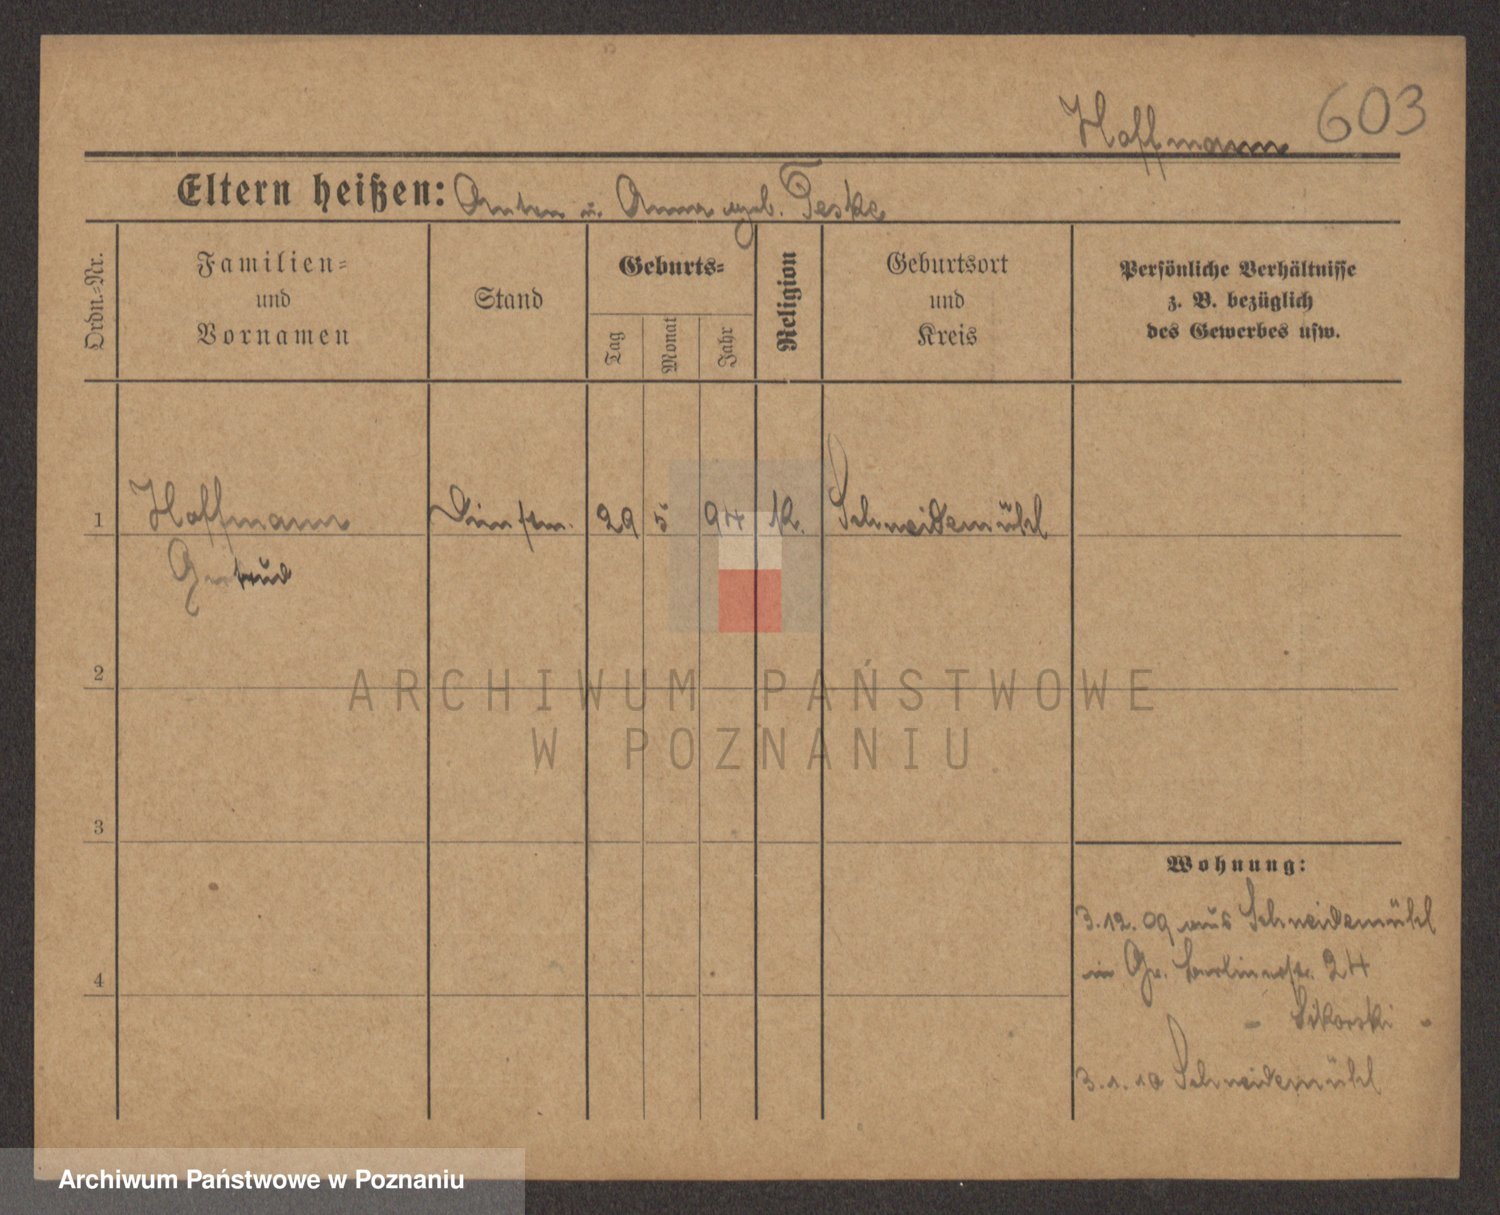 Hoffmann 603
Eltern heißen: Anton u. Anna geb. Teske
Ordn.-Nr.
Familien-
und
Vornamen
Stand
Geburts-
Tag
Monat
Jahr
Religion
Geburtsort
und
Kreis
Persönliche Verhältnisse
z. B. bezüglich
des Gewerbes usw.
1 Hoffmann Dienstm. 29 5 94 k. Schneidemühl
Gertrud
2
3
4
Wohnung:
3.12.09 aus Schneidemühl
in Gr. Berlinerstr. 24
- Sikorski -
3.1.10 Schneidemühl
ARCHIWUM PAŃSTWOWE
W POZNANIU
Archiwum Państwowe w Poznaniu